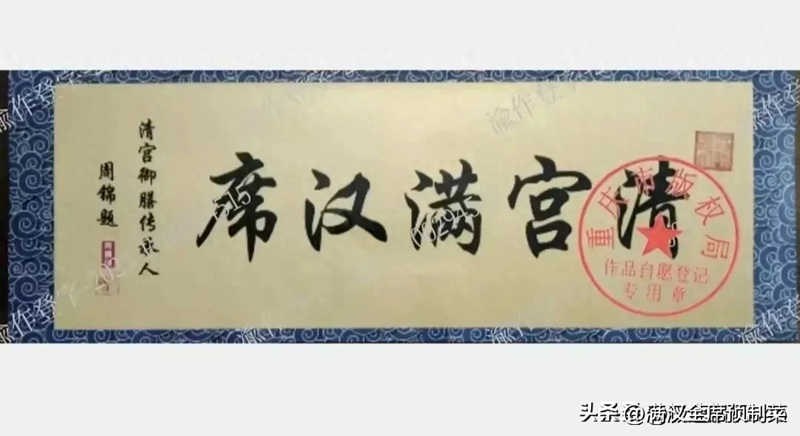 清宫满汉席
清宫御膳传承人
周锦题
重庆市版权局
作品自愿登记
专用章
渝作登字
头条 @满汉全席预制菜